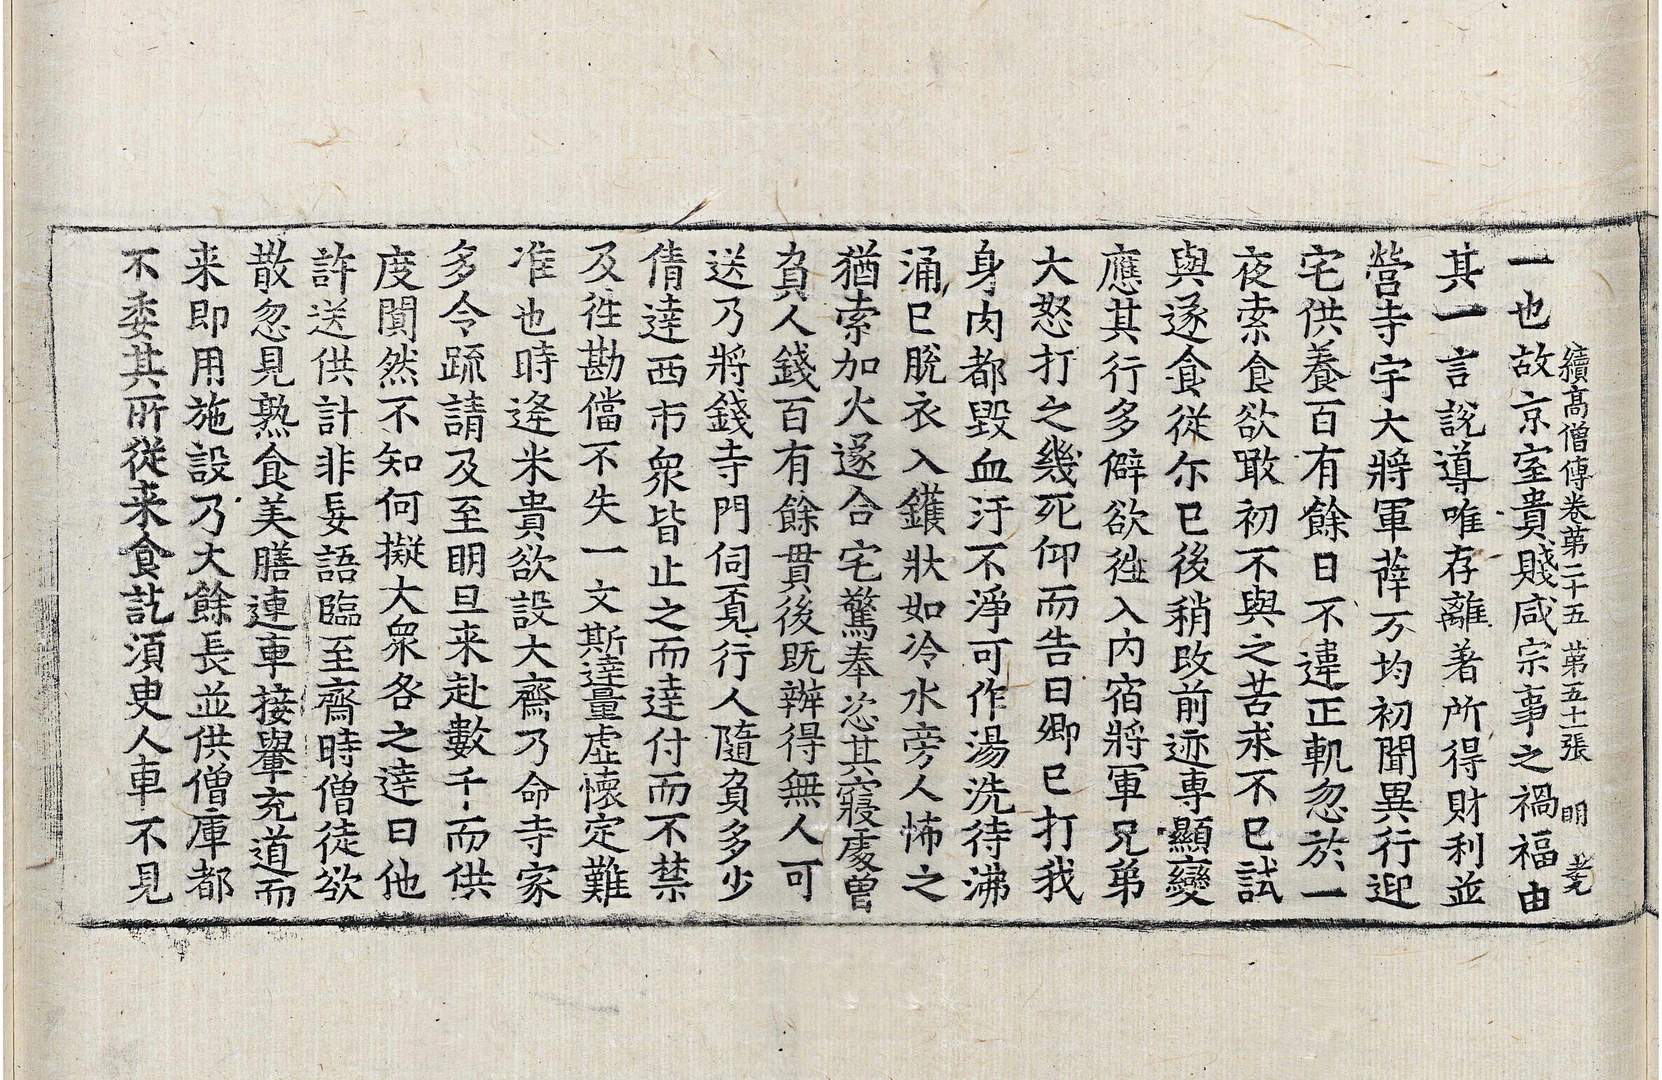 續高僧傳卷第二十五 第五十一張 明
一也故京室貴賤咸宗事之禍福由
其一言說導唯存離著所得財利並
營寺宇大將軍薛万均初聞異行迎
宅供養百有餘日不違正軌忽於一
夜索食欲噉初不與之苦求不已試
與遂食從尒已後稍改前迹専顯變
應其行多僻欲徃入內宿將軍兄弟
大怒打之幾死仰而告曰卿已打我
身肉都毀血汙不淨可作湯洗待沸
涌已脫衣入鑊狀如冷水旁人怖之
猶索加火遂合宅驚奉恣其寢處曾
負人錢百有餘貫後既辦得無人可
送乃將錢寺門伺覓行人隨負多少
倩達西市衆皆止之而達付而不禁
及徃勘儅不失一文斯達量虛懷定難
准也時逢米貴欲設大齋乃命寺家
多令疏請及至明旦来赴數千而供
度闃然不知何擬大衆各之達曰他
許送供計非妄語臨至齋時僧徒欲
散忽見熟食美膳連車接轝充道而
来即用施設乃大餘長並供僧庫都
不委其所從来食訖須臾人車不見